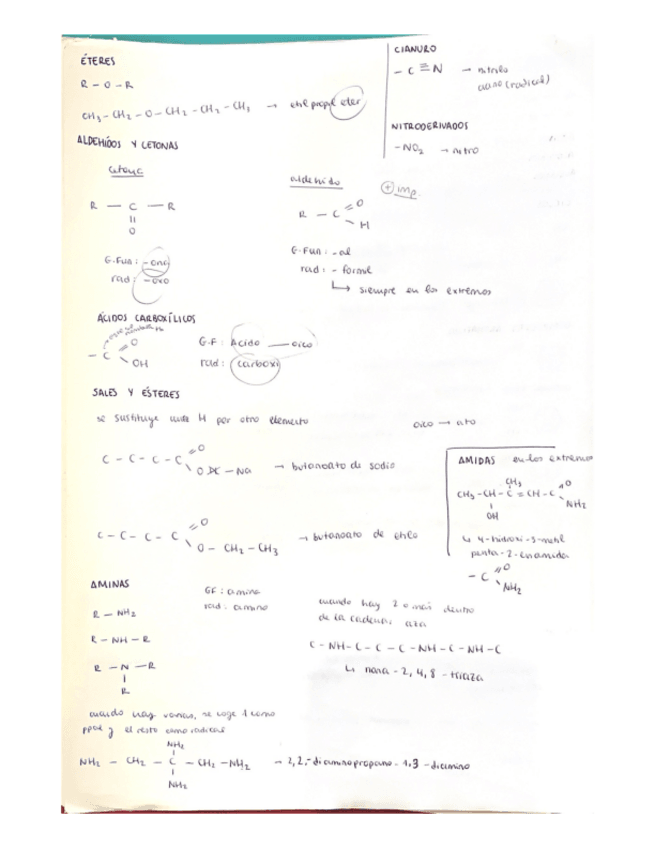 ÉTERES
R - O - R
CH3 - CH2 - O - CH2 - CH2 - CH3 → etil propil eter
CIANURO
- C ≡ N → nitrilo
ciano (radical)
NITRODERIVADOS
- NO2 → nitro
ALDEHÍDOS Y CETONAS
cetona
R — C — R
||
O
G-Fun: -ona
rad: -oxo
aldehído
⊕ imp.
R - C
O
H
G-Fun: -al
rad: - formil
↳ siempre en los extremos
ÁCIDOS CARBOXÍLICOS
- C
O
OH
G-F: Ácido ___ oico
rad: carboxi
SALES Y ÉSTERES
se sustituye este H por otro elemento
oico → ato
C - C - C - C
O
O - Na → butanoato de sodio
C - C - C - C
O
O - CH2 - CH3 → butanoato de etilo
AMIDAS en los extremos
CH3
CH3 - CH - C = CH - C
O
NH2
OH
↳ 4-hidroxi-3-metil
penta-2-enamida
- C
O
NH2
AMINAS
GF: amina
rad: amino
R - NH2
R - NH - R
R - N - R
R
cuando hay 2 o más dentro
de la cadena: aza
C - NH - C - C - C - NH - C - NH - C
↳ nona - 2, 4, 8 - triaza
cuando hay varias, se coge 1 como
ppal y el resto como radical
NH2
NH2 - CH2 - C - CH2 - NH2 → 2,2-diaminopropano-1,3-diamino
NH2